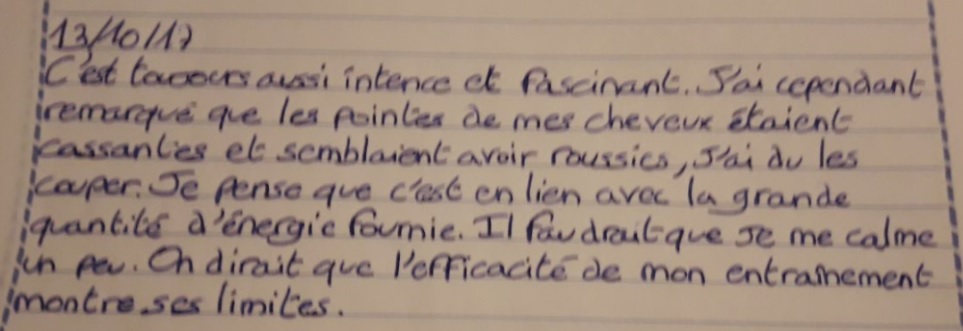 13/10/17
C'est toujours aussi intence et fascinant. J'ai cependant
remarqué que les pointes de mes cheveux étaient
cassantes et semblaient avoir roussies, J'ai du les
couper. Je pense que c'est en lien avec la grande
quantité d'énergie fournie. Il faudrait que Je me calme
un peu. On dirait que l'efficacité de mon entrainement
montre ses limites.